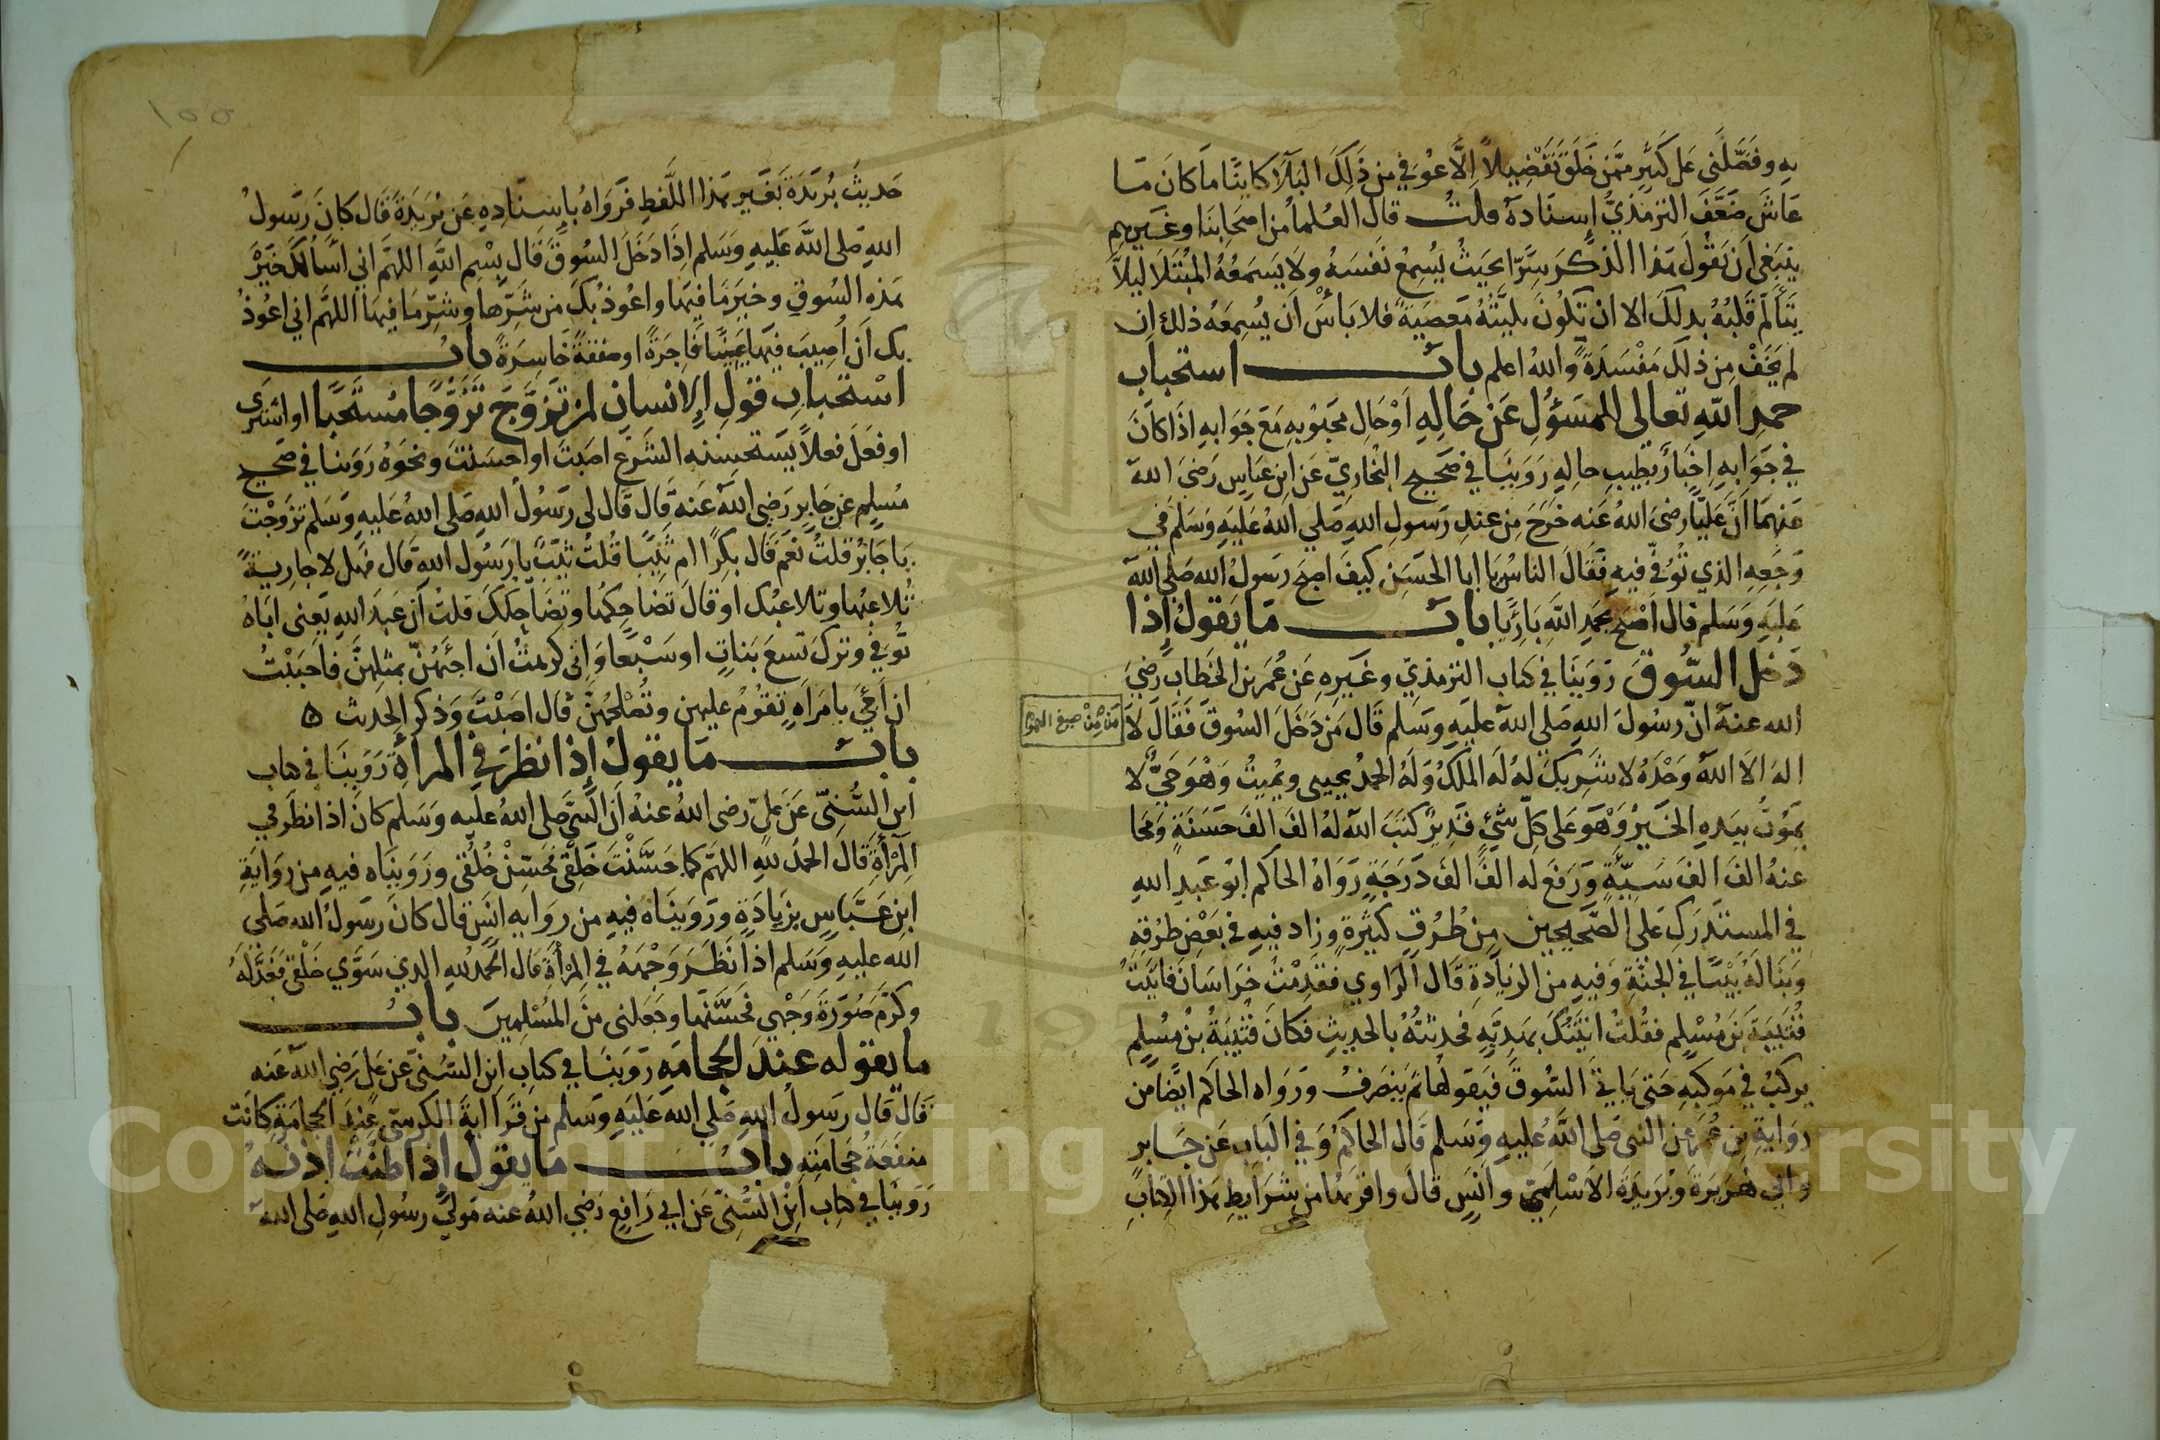 به وفضلني على كثير ممن خلق تفضيلا الا عوفي من ذلك البلا كاينا ما كان ما
عاش ضعف الترمذي إسناده قلت قال العلما من اصحابنا وغيرهم
ينبغي ان نقول هذا الذكر سرا بحيث يسمع نفسه ولا يسمعه المبتلا ليلا
يتألم قلبه بذلك الا ان تكون بليته معصية فلا بأس أن يسمعه ذلك ان
لم يخف من ذلك مفسدة والله اعلم باب استحباب
حمد الله تعالى للمسؤل عن حاله أو حال محبوبه مع جوابه اذا كان
في جوابه اخبار بطيب حاله روينا في صحيح البخاري عن ابن عباس رضي الله
عنهما أن عليا رضي الله عنه خرج من عند رسول الله صلى الله عليه وسلم في
وجعه الذي توفي فيه فقال الناس يا ابا الحسن كيف اصبح رسول الله صلى الله
عليه وسلم قال أصبح بحمد الله بارئا باب ما يقول إذا
دخل السوق روينا في كتاب الترمذي وغيره عن عمر بن الخطاب رضي
الله عنه ان رسول الله صلى الله عليه وسلم قال من دخل السوق فقال لا
اله الا الله وحده لا شريك له له الملك وله الحمد يحيى ويميت وهو حي لا
يموت بيده الخير وهو على كل شئ قدير كتب الله له الف الف حسنة ومحا
عنه الف الف سيئة ورفع له الف الف درجة رواه الحاكم ابو عبد الله
في المستدرك على الصحيحين من طرق كثيرة وزاد فيه في بعض طرقه
وبنا له بيتا في الجنة وفيه من الزيادة قال الراوي فقدمت خراسان فاتيت
قتيبة بن مسلم فقلت اتيتك بهدية فحدثته بالحديث فكان قتيبة بن مسلم
يركب في موكبه حتى ياتي السوق فيقولها ثم ينصرف ورواه الحاكم ايضا من
رواية بن عمر عن النبي صلى الله عليه وسلم قال الحاكم وفي الباب عن جابر
وابي هريرة وبريدة الاسلمي وانس قال واقربها من شرايط هذا الكتاب
حديث بريدة بغير هذا اللفظ فرواه بإسناده عن بريدة قال كان رسول
الله صلى الله عليه وسلم اذا دخل السوق قال بسم الله اللهم اني اسألك خير
هذه السوق وخير ما فيها واعوذ بك من شرها وشر ما فيها اللهم اني اعوذ
بك أن أصيب فيها يمينا فاجرة او صفقة خاسرة باب
استحباب قول الإنسان لمن تزوج تزوجا مستحبا او اشترى
او فعل فعلا يستحسنه الشرع اصبت او احسنت ونحوه روينا في صحيح
مسلم عن جابر رضي الله عنه قال قال لي رسول الله صلى الله عليه وسلم تزوجت
يا جابر قلت نعم قال بكرا ام ثيبا قلت ثيب يا رسول الله قال فهل لا جارية
تلاعبها وتلاعبك او قال تضاحكها وتضاحكك قلت ان عبد الله يعني اباه
توفي وترك تسع بنات او سبعا واني كرهت ان اجئهن بمثلهن فاحببت
ان اجئ بامراه تقوم عليهن وتصلحهن قال اصبت وذكر الحديث ه
باب ما يقول إذا نظر في المرآة روينا في كتاب
ابن السني عن علي رضي الله عنه ان النبي صلى الله عليه وسلم كان اذا نظر في
المرآة قال الحمد لله اللهم كما حسنت خلقي فحسن خلقي ورويناه فيه من رواية
ابن عباس بزيادة ورويناه فيه من روايه انس قال كان رسول الله صلى
الله عليه وسلم اذا نظر وجهه في المرآة قال الحمد لله الذي سوى خلقي فعدله
وكرم صورة وجهي فحسنها وجعلني من المسلمين باب
ما يقوله عند الحجامه روينا في كتاب ابن السني عن علي رضي الله عنه
قال قال رسول الله صلى الله عليه وسلم من قرأ اية الكرسي عند الحجامة كانت
منفعة حجامته باب ما يقول إذا طنت اذنه
روينا في كتاب ابن السني عن ابي رافع رضي الله عنه مولى رسول الله صلى الله
١٥٥
Copyright © King Saud University